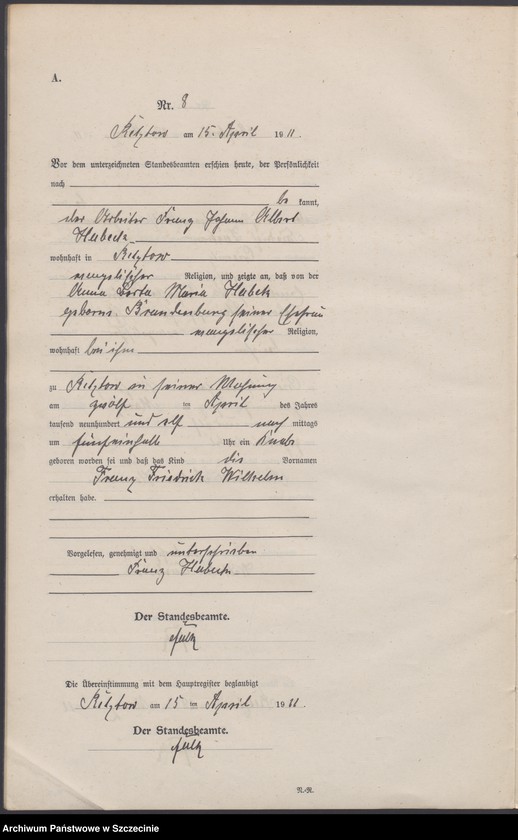 A.
Nr. 8
am 15. April 1911.
Vor dem unterzeichneten Standesbeamten erschien heute, der Persönlichkeit
nach
be kannt,
der Arbeiter Franz Johann Albert
wohnhaft in
evangelischer Religion, und zeigte an, daß von der
Anna Berta Maria
geborene Brandenburg seiner Ehefrau
evangelischer Religion,
wohnhaft bei ihm
zu in seiner Wohnung
am zwölf ten April des Jahres
tausend neunhundert und elf nach mittags
um fünfeinhalb Uhr ein Knabe
geboren worden sei und daß das Kind die Vornamen
Franz Friedrich Wilhelm
erhalten habe.
Vorgelesen, genehmigt und unterschrieben
Franz
Der Standesbeamte.
Die Übereinstimmung mit dem Hauptregister beglaubigt
am 15 ten April 1911.
Der Standesbeamte.
N.-R.
Archiwum Państwowe w Szczecinie